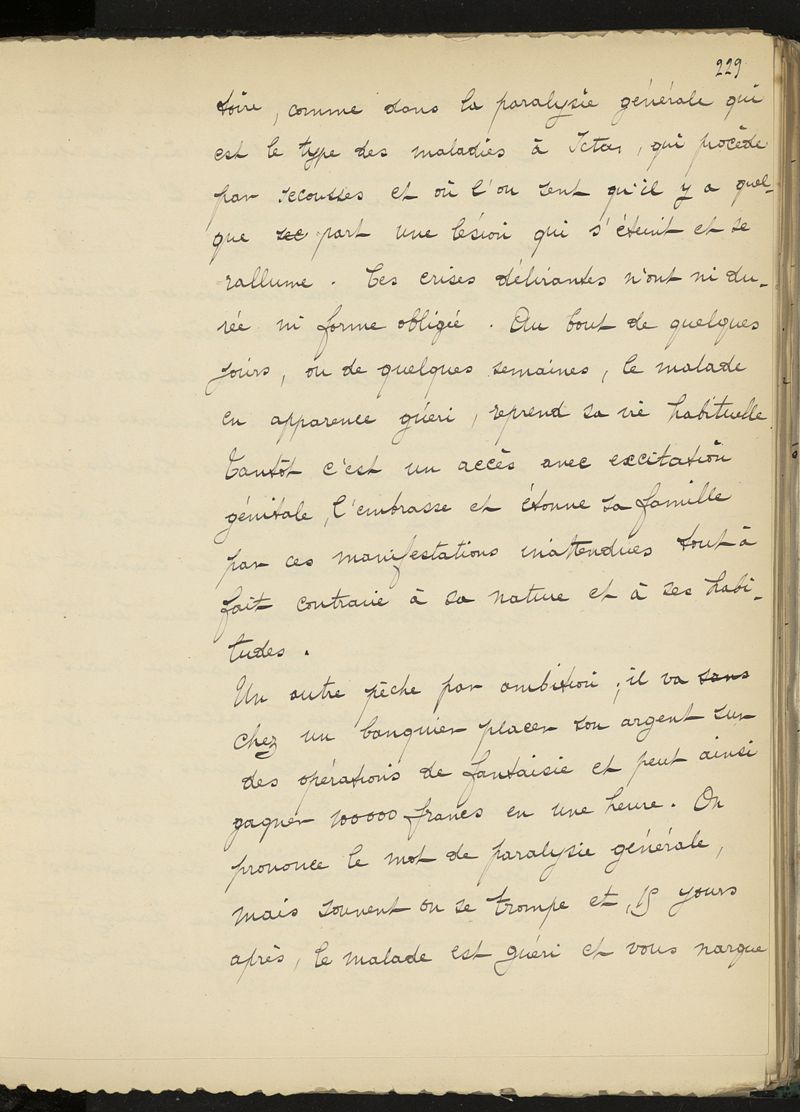 229
toire, comme dans la paralysie générale qui
est le type des maladies à Ictus, qui procède
par secousses et où l'on sent qu'il y a quel-
que sec part une lésion qui s'éteint et se
rallume. Ces crises délirantes n'ont ni du-
rée ni forme obligée. Au bout de quelques
jours, ou de quelques semaines, le malade
en apparence guéri, reprend sa vie habituelle.
Tantôt c'est un accès avec excitation
génitale, l'embrasse et étonne sa famille
par ces manifestations inattendues tout à
fait contraire à sa nature et à ses habi-
tudes.
Un autre pèche par ambition; il va sans
chez un banquier placer son argent sur
des opérations de fantaisie et peut ainsi
gagner 100000 francs en une heure. On
prononce le mot de paralysie générale,
mais souvent on se trompe et, 15 yours
après, le malade est guéri et vous nargue